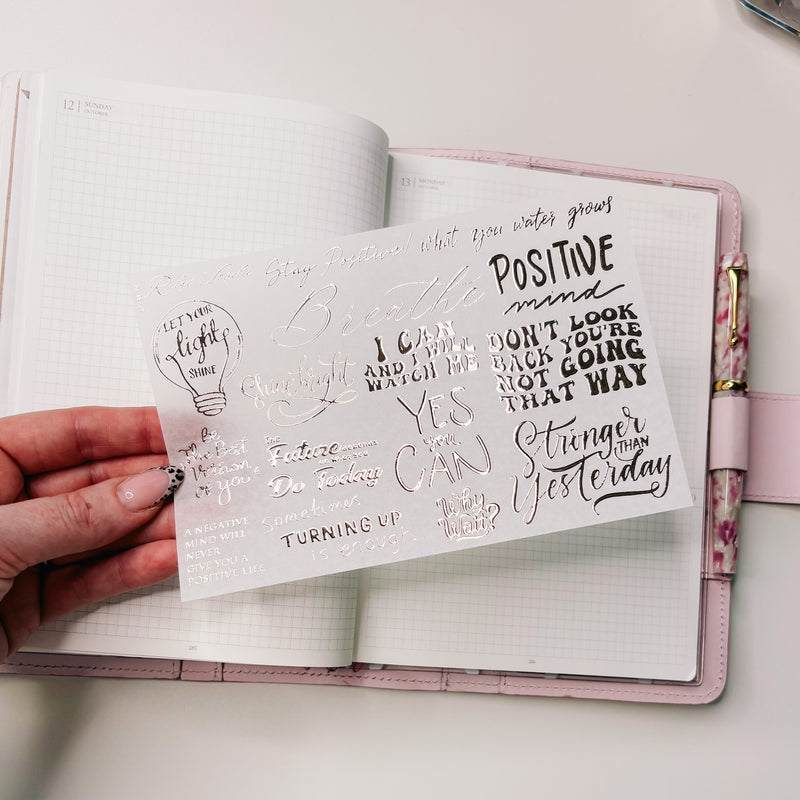 12 | SUNDAY
OCTOBER
13 | MONDAY
OCTOBER
Stay Positive! what you water grows
Breathe
POSITIVE
mind
LET YOUR
light
SHINE
Shine bright
I CAN
AND I WILL
WATCH ME
DON'T LOOK
BACK YOU'RE
NOT GOING
THAT WAY
YES
you
CAN
Stronger
THAN
Yesterday
To Be
The Best
Version
of you
THE
Future
Do Today
Sometimes
TURNING UP
is enough
Why
Wait?
A NEGATIVE
MIND WILL
NEVER
GIVE YOU A
POSITIVE LIFE